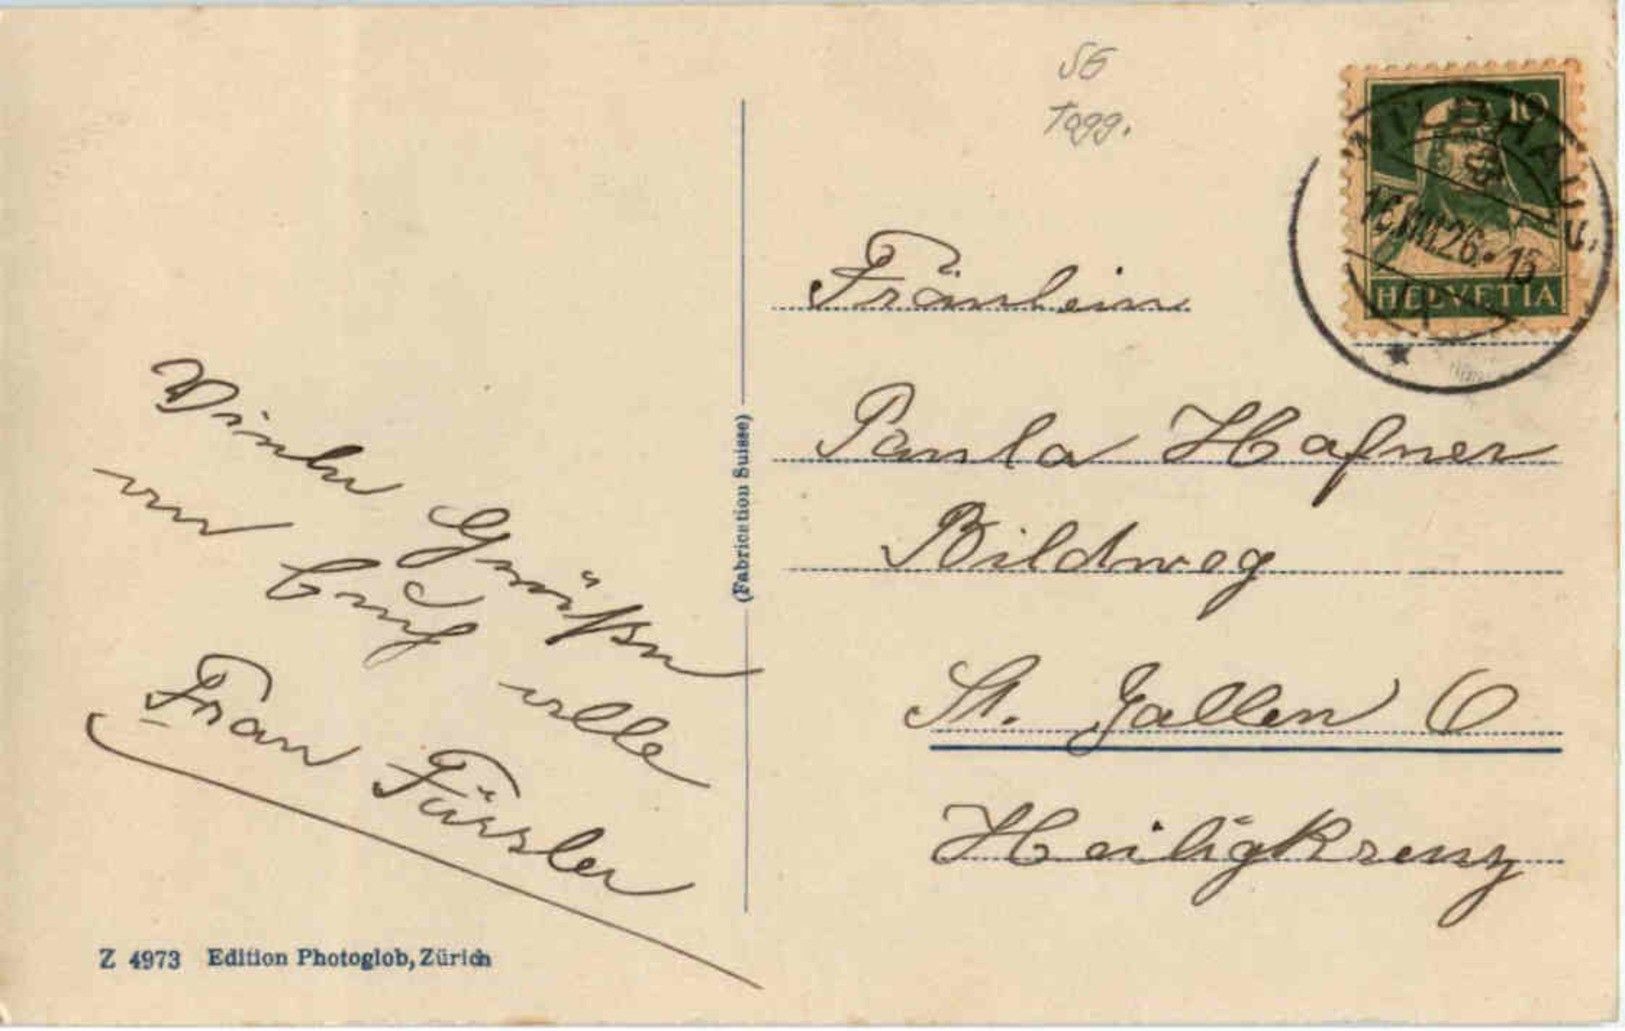 SG
Togg.
10
WILDHAUS
16.VIII.26.-15
HELVETIA
Fräulein
Paula Hafner
Bildweg
St. Gallen O
Heiligkreuz
(Fabrication Suisse)
Viele Grüße
an Euch alle
Frau Fässler
Z 4973 Edition Photoglob, Zürich